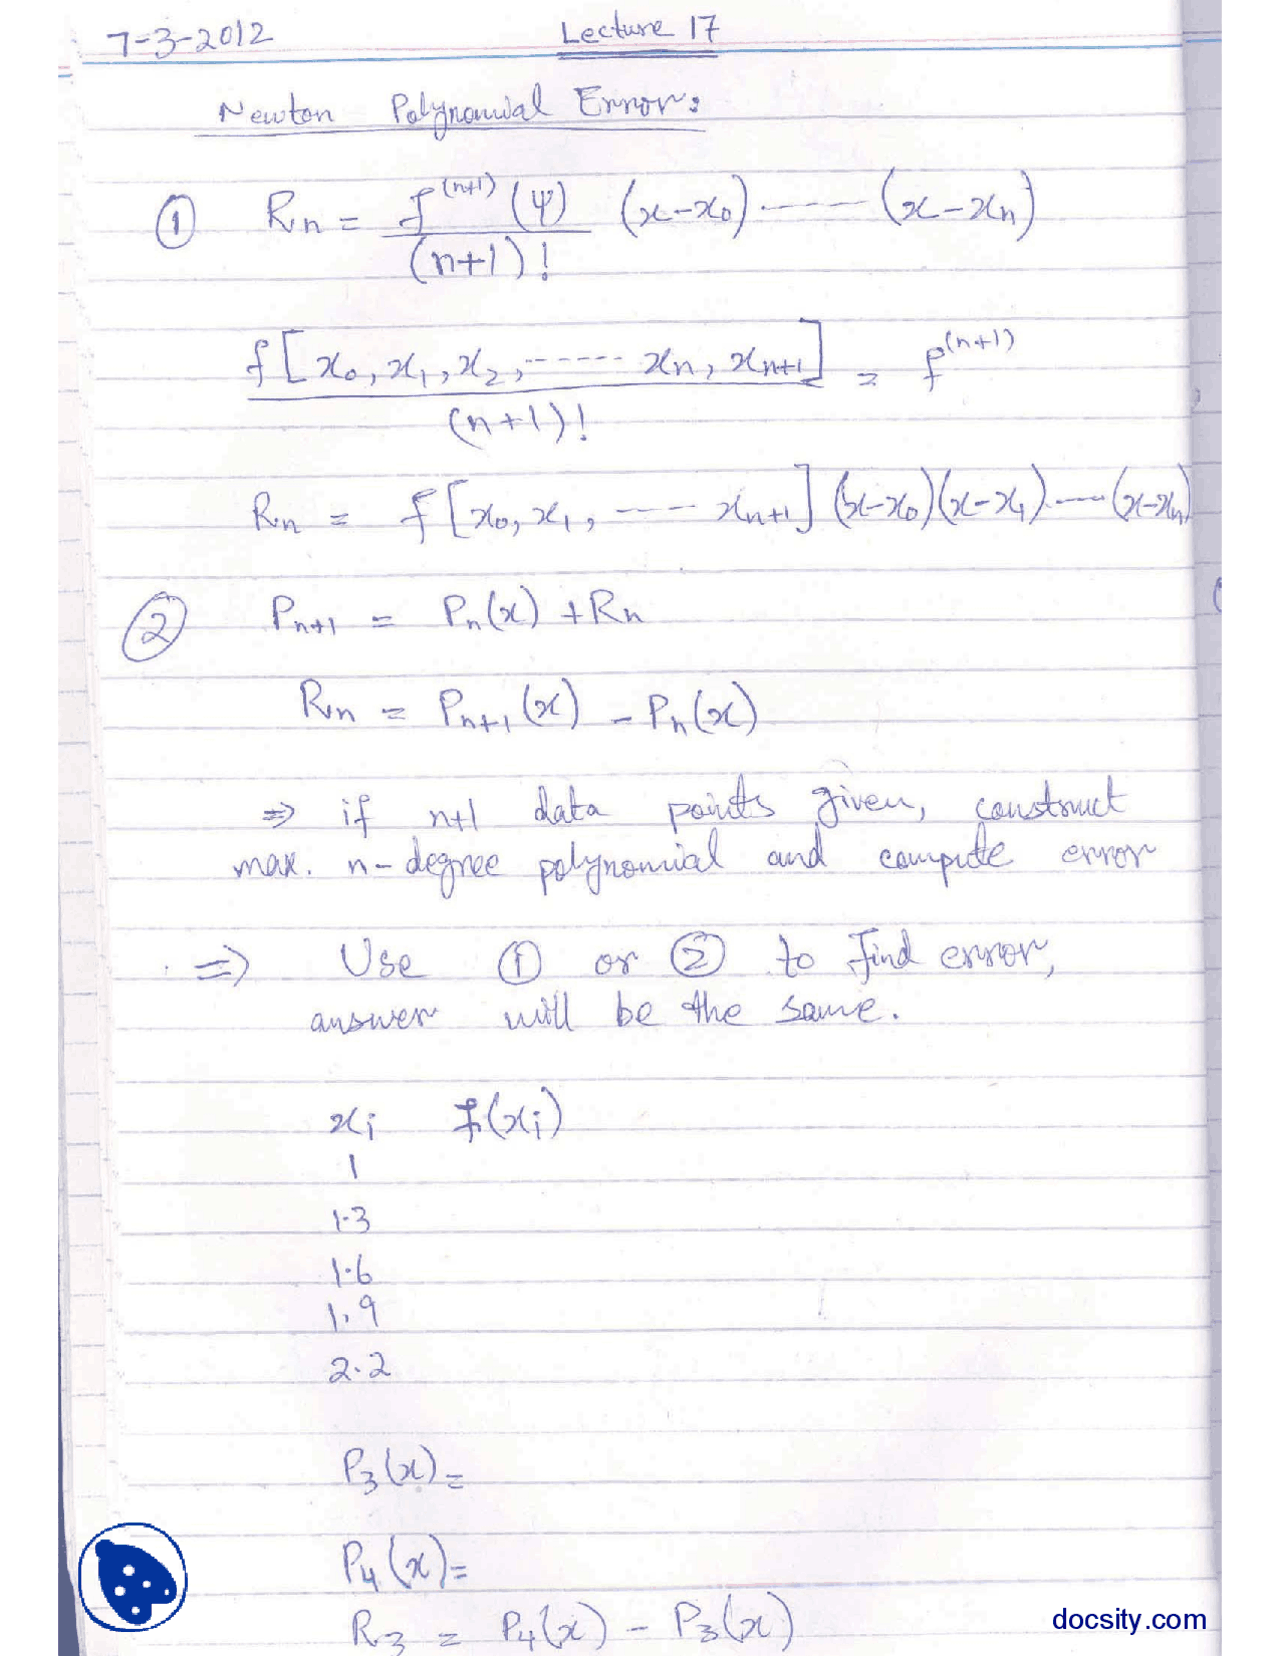 7-3-2012 Lecture 17
Newton Polynomial Error:
① Rn = f^(n+1)(ψ) / (n+1)! (x-x₀)------(x-xn)
f[x₀, x₁, x₂, ------ xn, xn+1] / (n+1)! = f^(n+1)
Rn = f[x₀, x₁, ---- xn+1](x-x₀)(x-x₁)----(x-xn)
② Pn+1 = Pn(x) + Rn
Rn = Pn+1(x) - Pn(x)
⇒ if n+1 data points given, construct
max. n-degree polynomial and compute error
⇒ Use ① or ② to find error,
answer will be the same.
xi f(xi)
1
1.3
1.6
1.9
2.2
P₃(x)=
P₄(x)=
R₃ = P₄(x) - P₃(x)
docsity.com